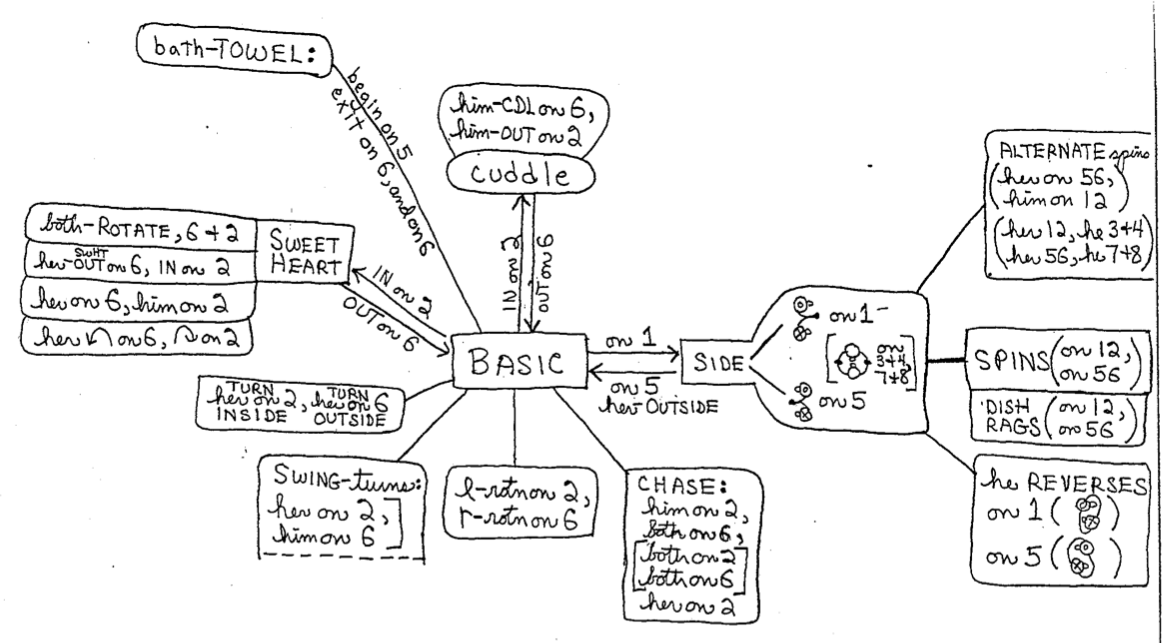 bath-TOWEL:
begin on 5
exit on 6, and on 6
him-CDL on 6,
him-OUT on 2
cuddle
IN on 2
OUT on 6
both-ROTATE, 6+2
SWHT
her-OUT on 6, IN on 2
her on 6, him on 2
her ↶ on 6, ↷ on 2
SWEET
HEART
IN on 2
OUT on 6
BASIC
on 1
on 5
her OUTSIDE
SIDE
on 1
on
3+4,
7+8
on 5
ALTERNATE spins
(her on 56,
him on 12)
(her 12, he 3+4)
(her 56, he 7+8)
SPINS (on 12,
on 56)
DISH
RAGS
(on 12,
on 56)
he REVERSES
on 1 ( )
on 5 ( )
TURN TURN
her on 2, her on 6
INSIDE OUTSIDE
SWING-turns:
her on 2,
him on 6
l-rotn on 2,
r-rotn on 6
CHASE:
him on 2,
both on 6,
[both on 2
both on 6]
her on 2